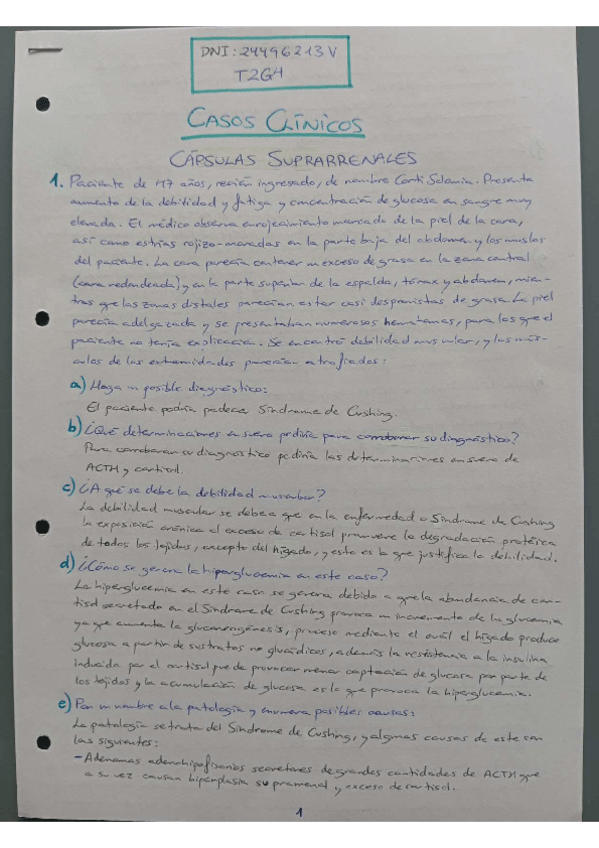 DNI: 24496213V
T2G4
CASOS CLÍNICOS
CÁPSULAS SUPRARRENALES
1. Paciente de 47 años, recién ingresado, de nombre Conti Solomia. Presenta
aumento de la debilidad y fatiga y concentración de glucosa en sangre muy
elevada. El médico observa enrojecimiento marcado de la piel de la cara,
así como estrías rojizo-moradas en la parte baja del abdomen y los muslos
del paciente. La cara parecía contener un exceso de grasa en la zona central
(cara redondeada) y en la parte superior de la espalda, tórax y abdomen, mien-
tras que las zonas distales parecían estar casi desprovistas de grasa. La piel
parecía adelgazada y se presentaban numerosos hematomas, para los que el
paciente no tenía explicación. Se encontró debilidad muscular, y los mús-
culos de las extremidades parecían atrofiados:
a) Haga un posible diagnóstico:
El paciente podría padecer Síndrome de Cushing.
b) ¿Qué determinaciones en suero pediría para corroborar su diagnóstico?
Para corroborar su diagnóstico pediría las determinaciones en suero de
ACTH y cortisol.
c) ¿A qué se debe la debilidad muscular?
La debilidad muscular se debe a que en la enfermedad o Síndrome de Cushing
la exposición crónica al exceso de cortisol promueve la degradación proteica
de todos los tejidos, excepto del hígado, y esto es lo que justifica la debilidad.
d) ¿Cómo se genera la hiperglucemia en este caso?
La hiperglucemia en este caso se genera debido a que la abundancia de cor-
tisol secretado en el Síndrome de Cushing provoca un incremento de la glucemia
ya que aumenta la gluconeogénesis, proceso mediante el cuál el hígado produce
glucosa a partir de sustratos no glucídicos, además la resistencia a la insulina
inducida por el cortisol puede provocar menor captación de glucosa por parte de
los tejidos y la acumulación de glucosa es lo que provoca la hiperglucemia.
e) Pon un nombre a la patología y enumera posibles causas:
La patología se trata del Síndrome de Cushing, y algunas causas de este son
las siguientes:
- Adenomas adenohipofisarios secretores de grandes cantidades de ACTH que
a su vez causan hiperplasia suprarrenal y exceso de cortisol.
1